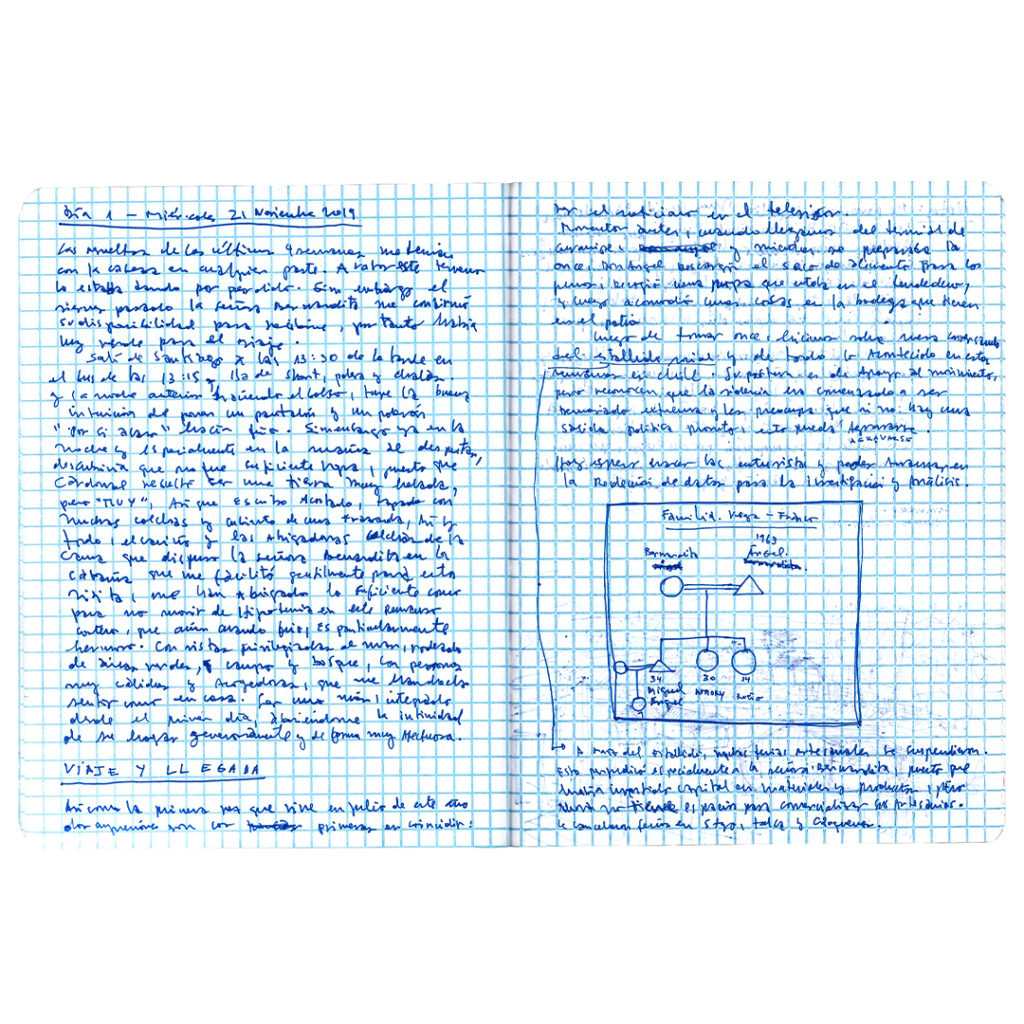 Día 1 - Miércoles 21 Noviembre 2019
Las vueltas de las últimas 4 semanas me tenía
con la cabeza en cualquier parte. A ratos este terreno
lo estaba dando por perdido. Sin embargo el
viernes pasado la señora Bernardita me confirmó
su disponibilidad para recibirme, por tanto había
luz verde para el viaje.
Salí de Santiago a las 13:30 de la tarde en
el bus de las 13:15 y iba de short, polera y chalas.
y la noche anterior haciendo el bolso, tuve la buena
intuición de poner un pantalón y un polerón
"por si acaso" hacía frío. Sin embargo ya en la
noche y especialmente en la mañana al despertar,
descubriría que no fue suficiente ropa, puesto que
Cardonal resultó ser una tierra muy helada,
pero "MUY", Así que escribo acostado, tapado con
muchas colchas y cubierto de una frazada, Así y
todo, el cariño y las abrigadoras colchas de la
cama que dispuso la señora Bernardita en la
cabaña que me facilitó gentilmente para esta
visita, me han abrigado lo suficiente como
para no morir de hipotermia en este
costero, que aún cuando frío, es particularmente
hermoso. Con vistas privilegiadas al mar, rodeado
de áreas verdes, campo y bosque, con personas
muy cálidas y acogedoras, que me han hecho
sentir como en casa. Soy uno más, integrado
desde el primer día, abriéndome la intimidad
de su hogar generosamente y de forma muy afectuosa.
VIAJE Y LLEGADA
Así como la primera vez que vine en julio de este año
dos aspectos son los primeros en coincidir:
ver el noticiario en el televisor.
Momentos antes, cuando llegamos del terminal de
y mientras se preparaba la
once, Don Ángel descargó el saco de alimento para los
perros, recogió una ropa que estaba en el tendedero,
y luego acomodó unas cosas en la bodega que tienen
en el patio.
Luego de tomar once, hicimos sobre mesa conversando
del estallido social y de todo lo acontecido en estas
semanas en Chile. Su postura es de apoyo al movimiento,
pero reconocen que la violencia ha comenzado a ser
demasiado extrema y les preocupa que si no hay una
salida política pronto, esto pueda agravarse.
AGRAVARSE
Hoy espero hacer las entrevistas y poder avanzar en
la recolección de datos para la investigación y análisis.
Familia. Vega - Franco
1963
Bernardita Ángel.
34 20 14
Miguel
Ángel
7
A raíz del estallido, muchas ferias artesanales se suspendieron.
Esto perjudicó especialmente a la señora Bernardita, puesto que
había invertido capital en materiales y productos, pero
ahora no tiene espacio para comercializar sus artesanías.
Se cancelaron ferias en Stgo, Talca y Cauquenes.